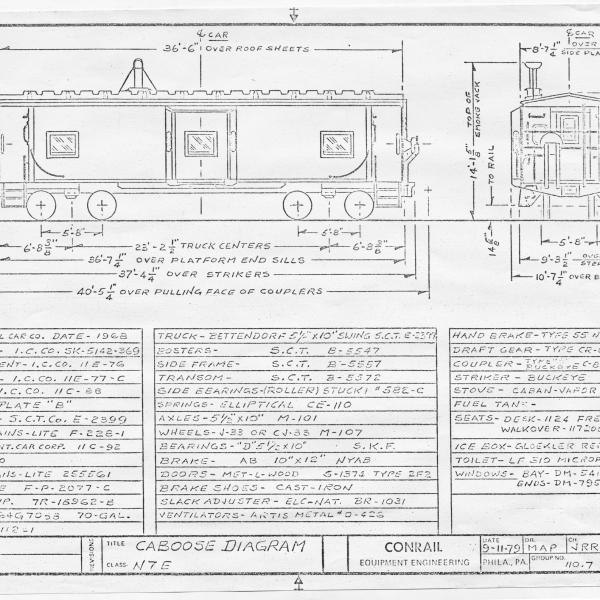 ℄ CAR
36'-6" OVER ROOF SHEETS
℄ CAR
8'-7 1/4" OVER
SIDE PLA
TOP OF SMOKE JACK
14'-1 5/8"
TO RAIL
5'-8"
5'-8"
6'-8 3/8" 23'-2 1/2" TRUCK CENTERS 6'-8 3/8"
36'-7 1/4" OVER PLATFORM END SILLS
37'-4 1/4" OVER STRIKERS
40'-5 1/4" OVER PULLING FACE OF COUPLERS
5'-8"
9'-3 1/2" OVE
STE
10'-7 1/2" OVER B
L CAR CO. DATE- 1968
- I.C.CO. SK-5142-369
ENT- I.C.CO. 11E-76
- I.C.CO. 11E-77-C
I.C.CO. 11C-88
PLATE "B"
- S.C.T.CO. E-2399
AINS-LITE F-228-1
NT.CAR CORP. 11C-92
ANS-LITE 255561
E F-P-2077-C
P. 7R-18962-B
64G7053 70-GAL.
112-1
TRUCK- BETTENDORF 5 1/2"X10" SWING S.C.T. E-2399
BOSTERS- S.C.T. B-5547
SIDE FRAME- S.C.T. B-5557
TRANSOM- S.C.T. B-5572
SIDE BEARINGS-(ROLLER) STUCKI #582-C
SPRINGS- ELLIPTICAL CE-110
AXLES- 5 1/2"X10" M-101
WHEELS- J-33 OR CJ-33 M-107
BEARINGS- "D" 5 1/2"X10" S.K.F.
BRAKE- AB 10"X12" NYAB
DOORS- MET-L-WOOD S-1374 TYPE 2F2
BRAKE SHOES- CAST-IRON
SLACK ADJUSTER- ELC-NAT. BR-1031
VENTILATORS- ARTIS METAL #D-426
HAND BRAKE-TYPE 55 N
DRAFT GEAR- TYPE CR-
COUPLER-
STRIKER- BUCKEYE
STOVE- CABAN-VAPOR
FUEL TANK-
SEATS- DESK-1124 FRE
WALKOVER-11720
ICE BOX-GLOEKLER RE
TOILET- LF 310 MICROP
WINDOWS- BAY-DM-541
ENDS-DM-795
REVISIONS
TITLE CABOOSE DIAGRAM
CLASS N7E
CONRAIL
EQUIPMENT ENGINEERING
DATE 9-11-79 DR. MAP CH. JRR
PHILA., PA. GROUP NO. 110.7